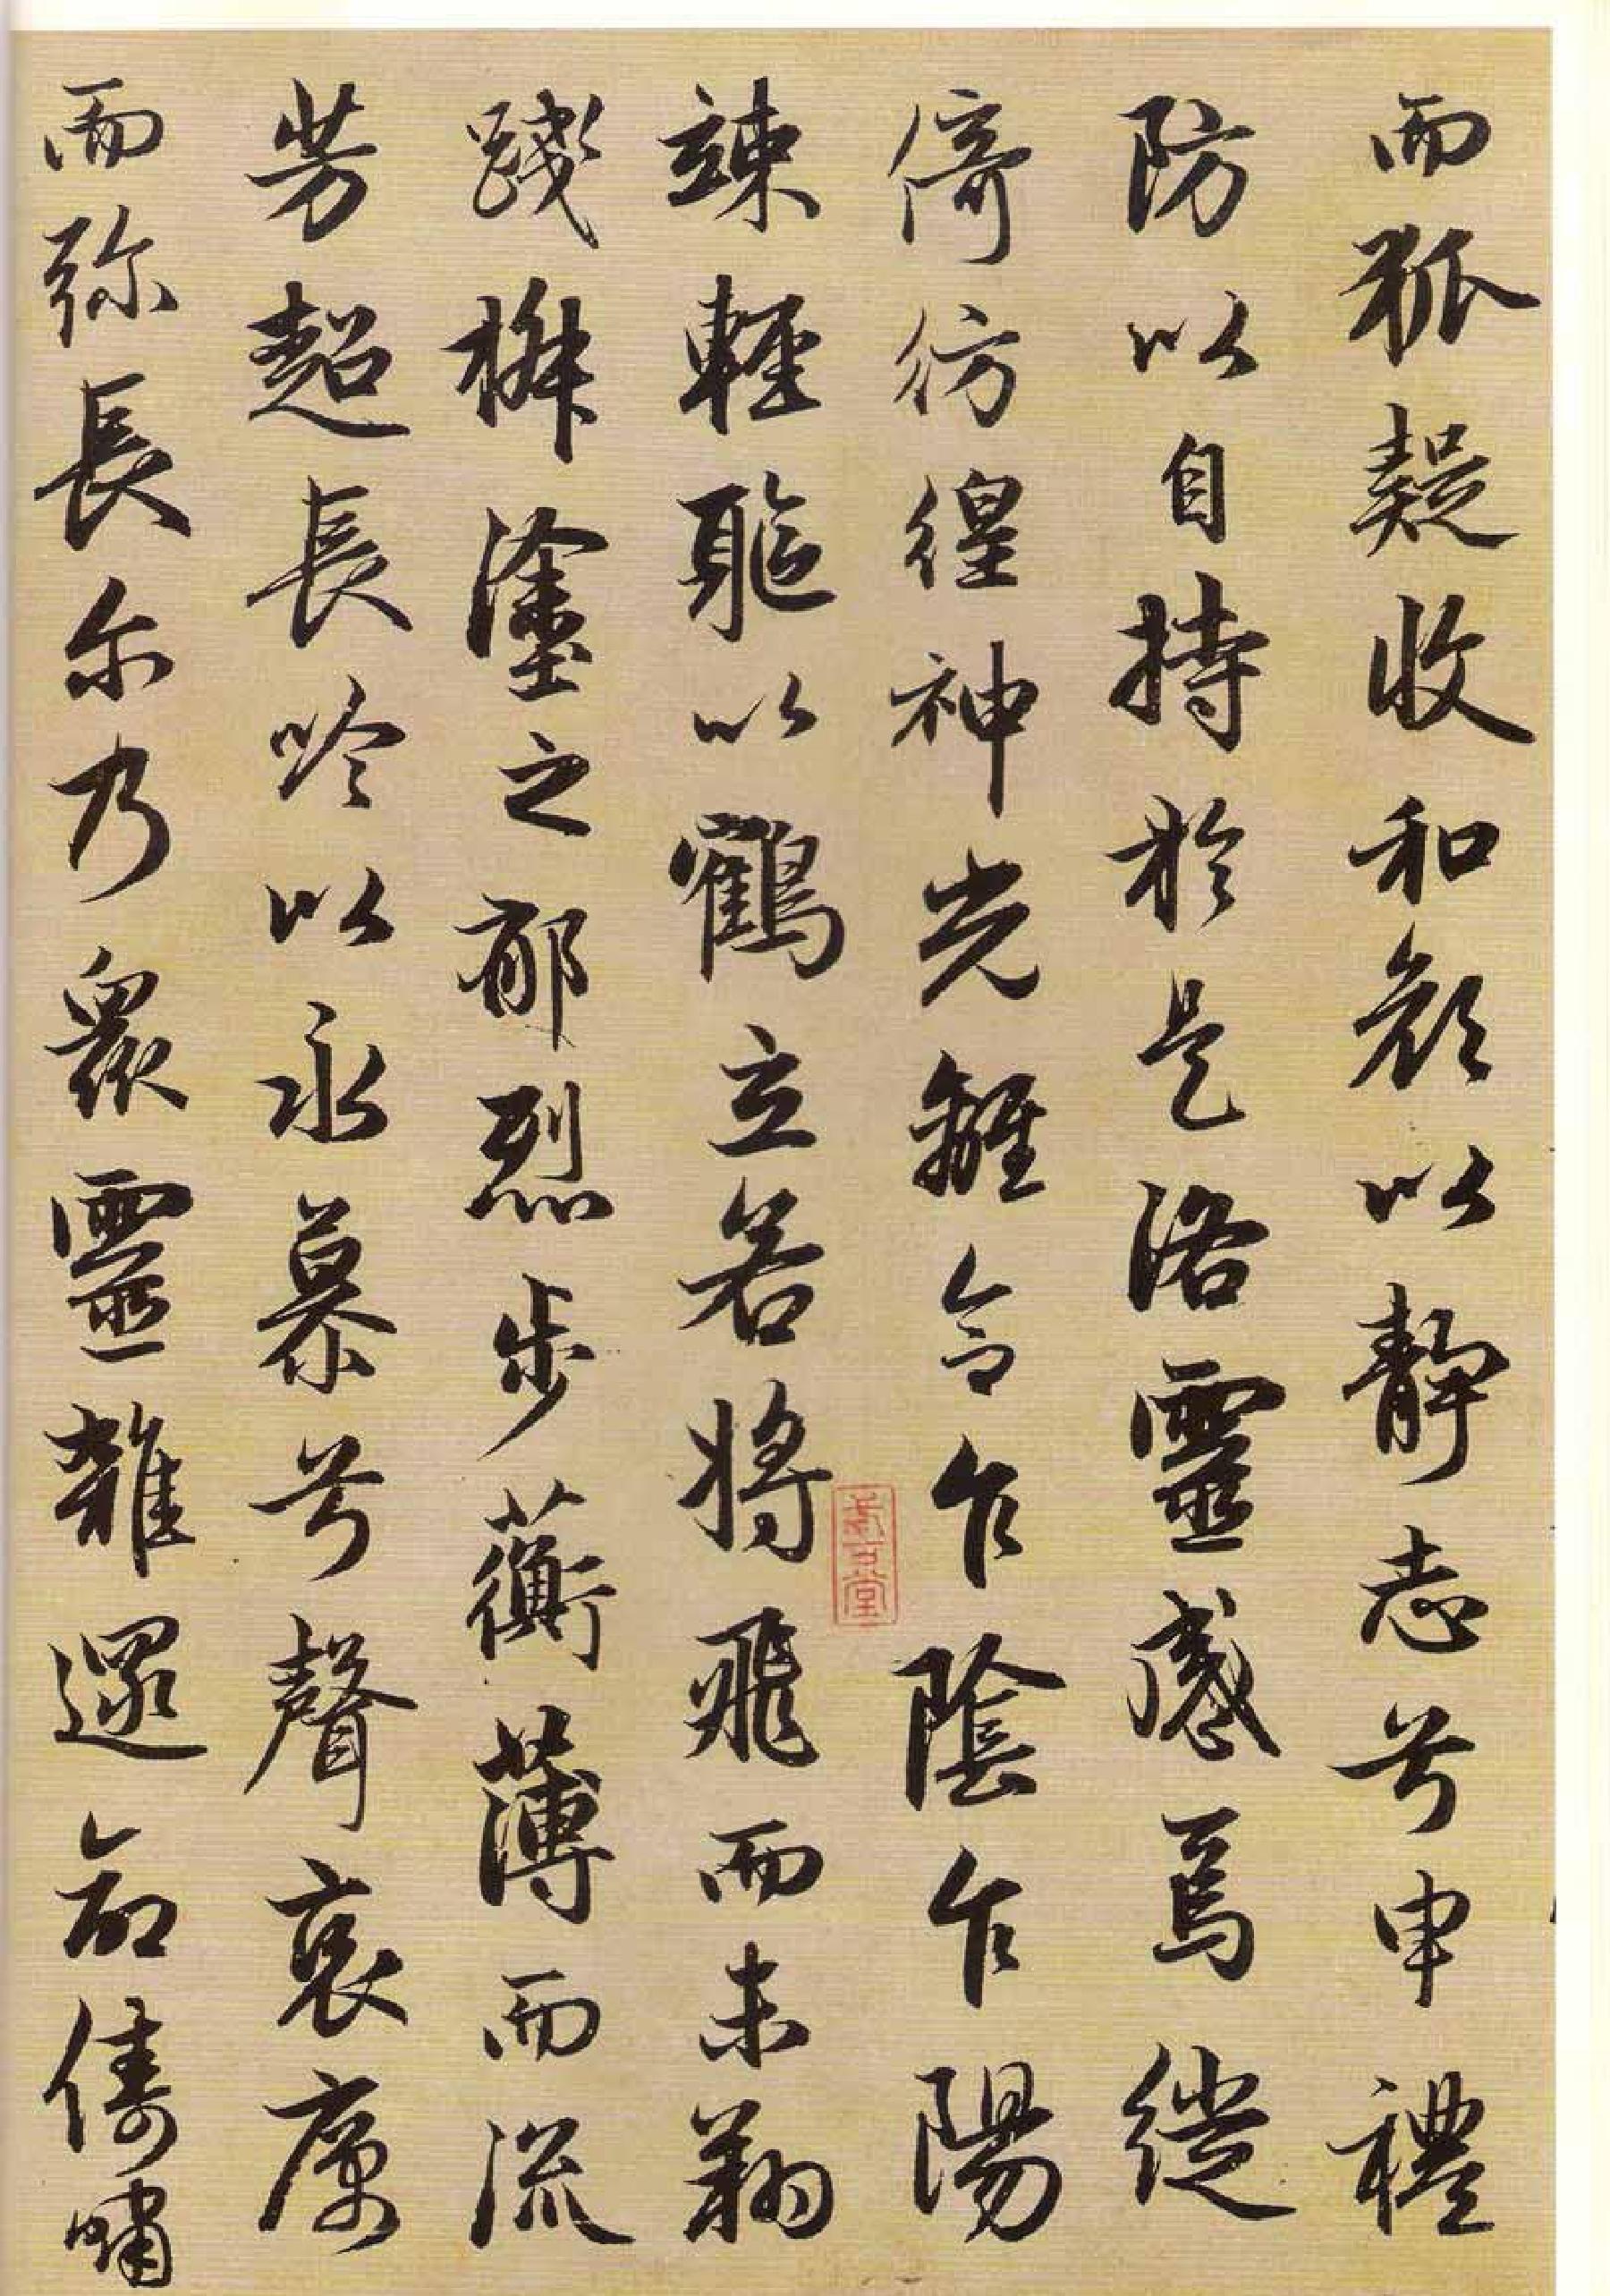 而狐疑收和顔以靜志兮申禮
防以自持於是洛靈感焉徙
倚彷徨神光離合乍陰乍陽
竦輕軀以鶴立若將飛而未翔
踐椒塗之郁烈步蘅薄而流
芳超長吟以永慕兮聲哀厲
而弥長尔乃衆靈雜遝命儔嘯